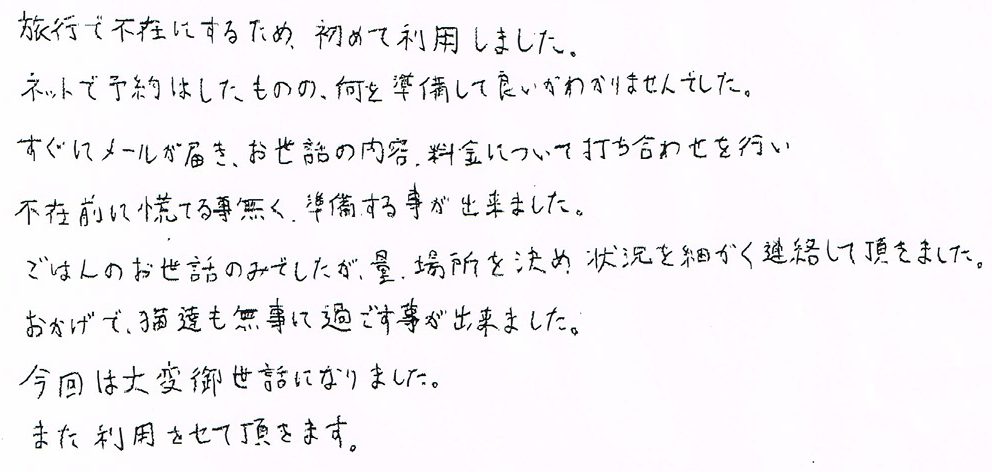 旅行で不在にするため、初めて利用しました。
ネットで予約はしたものの、何を準備して良いかわかりませんでした。
すぐにメールが届き、お世話の内容、料金について打ち合わせを行い
不在前に慌てる事無く、準備する事が出来ました。
ごはんのお世話のみでしたが、量、場所を決め 状況を細かく連絡して頂きました。
おかげで、猫達も無事に過ごす事が出来ました。
今回は大変御世話になりました。
また利用させて頂きます。